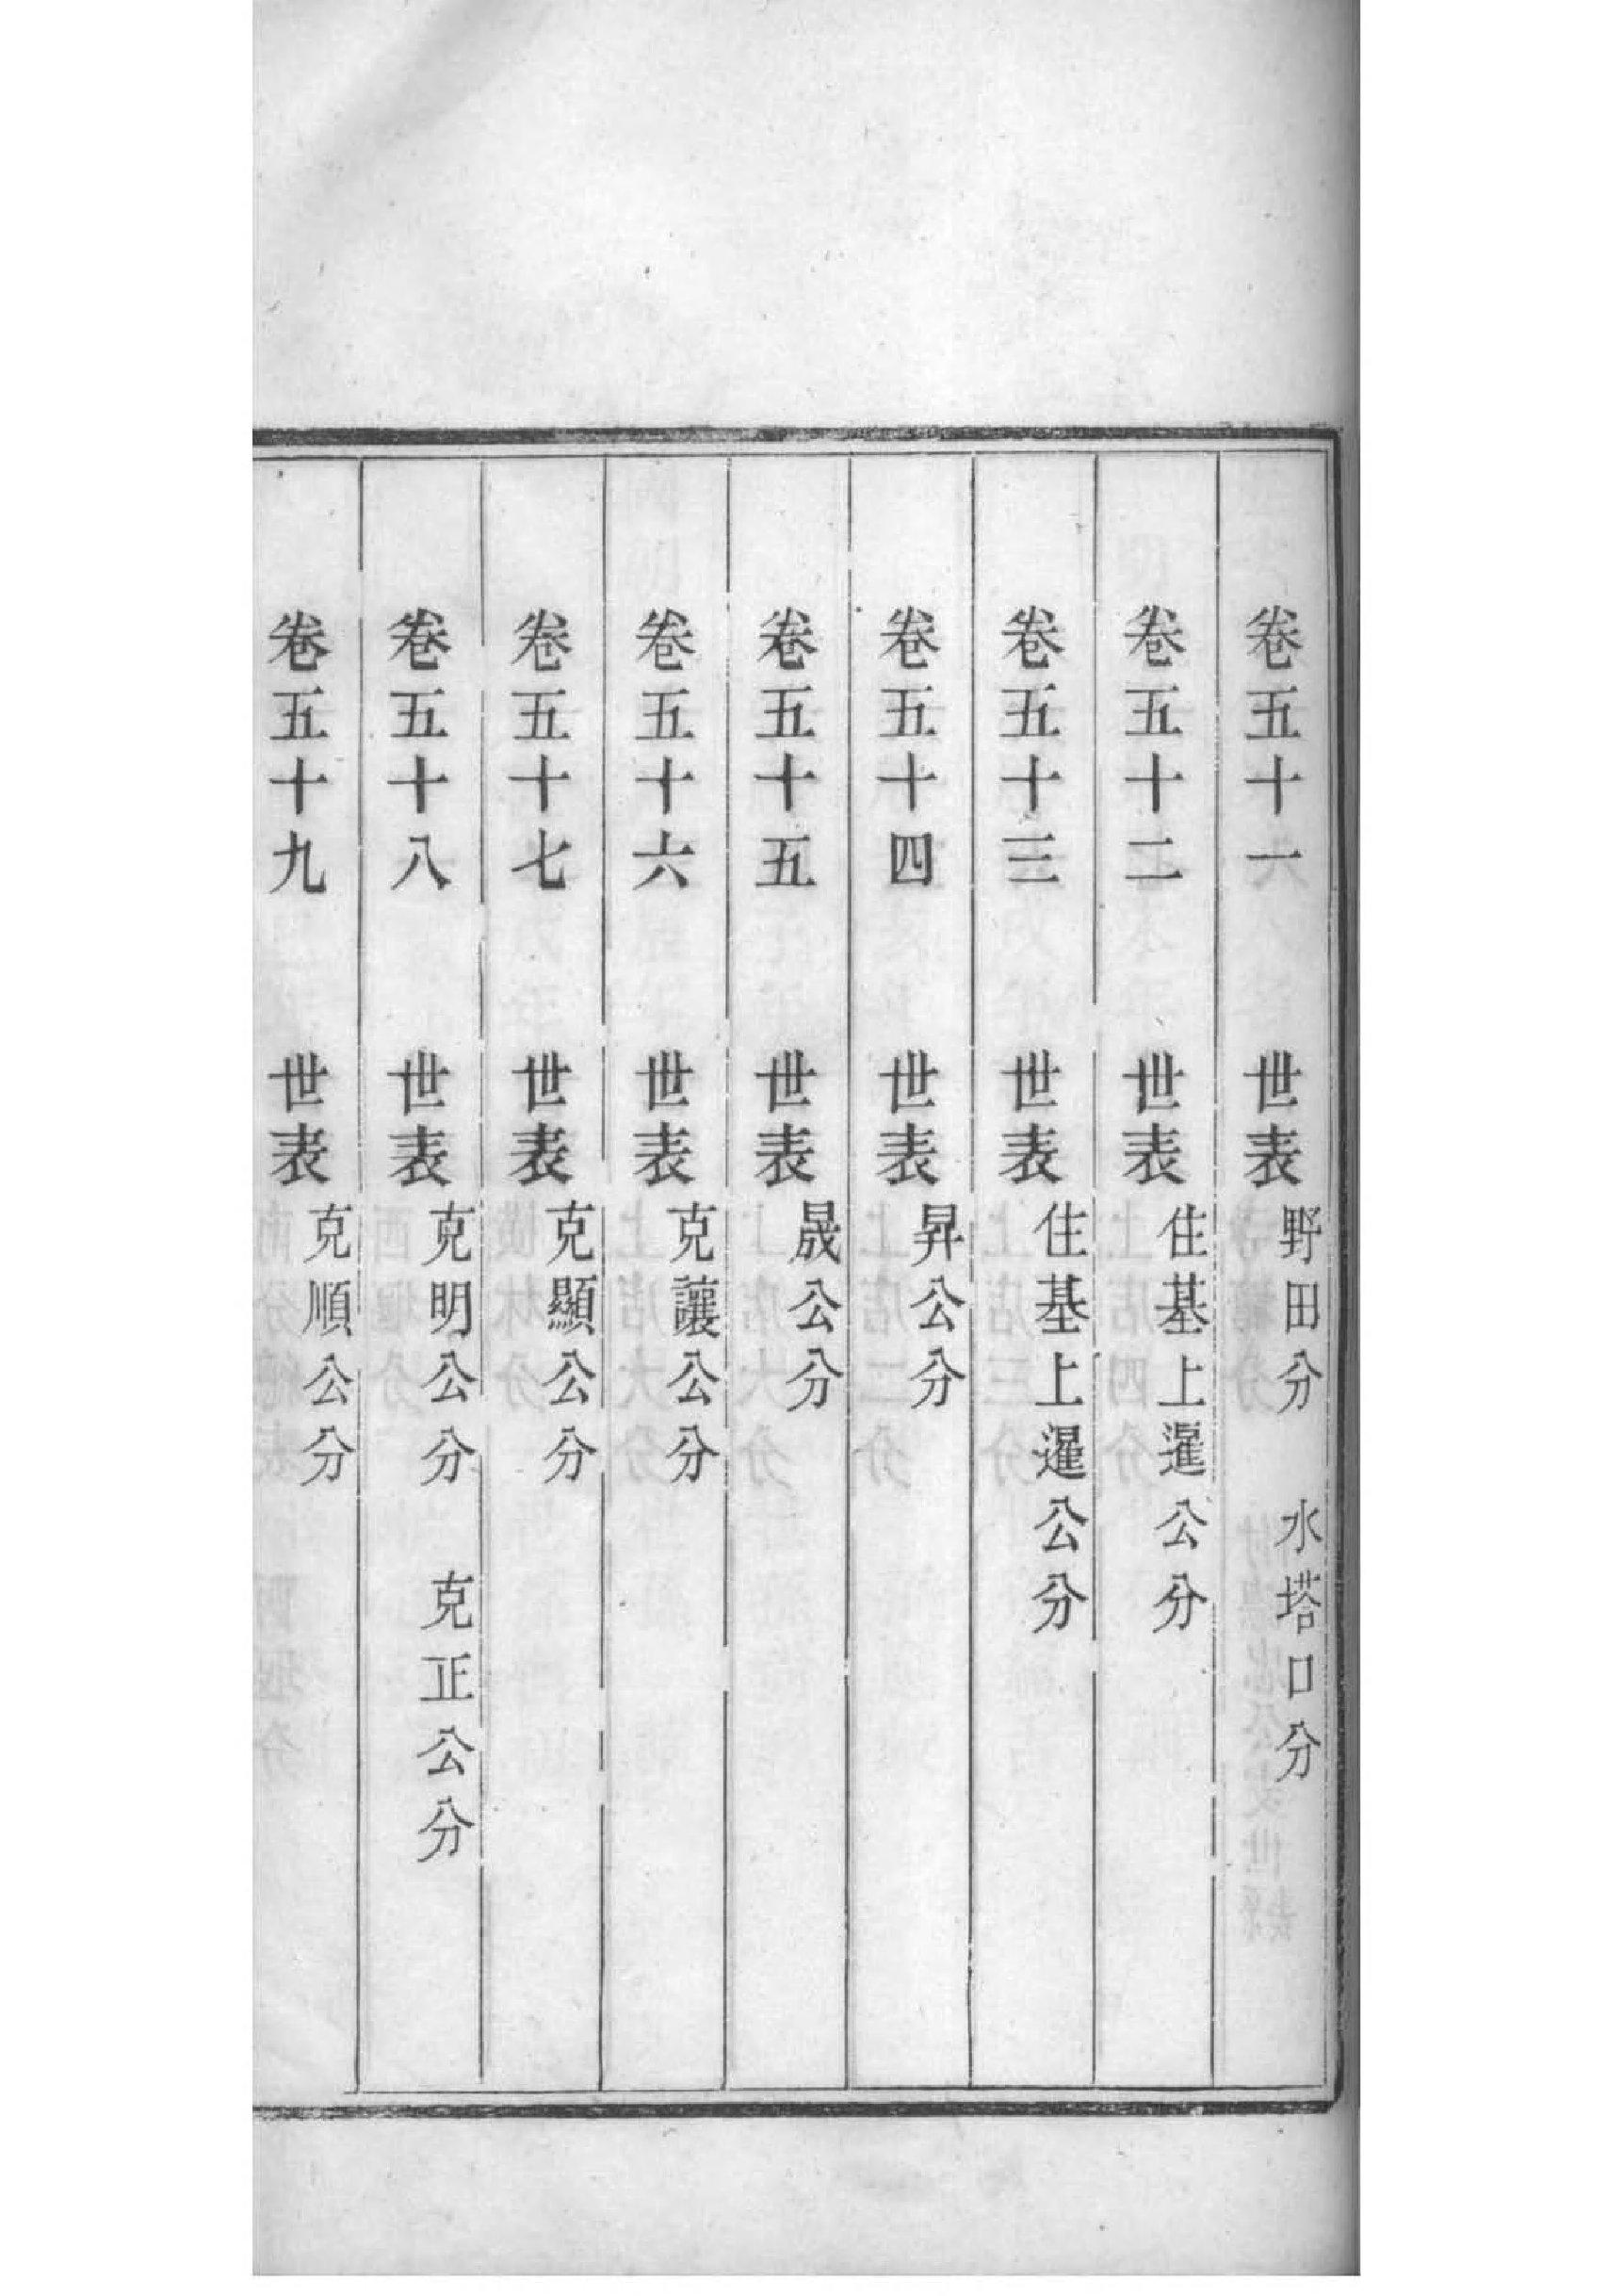 卷五十一 世表 野田分 水塔口分
卷五十二 世表 住基上暹公分
卷五十三 世表 住基上暹公分
卷五十四 世表 昇公分
卷五十五 世表 晟公分
卷五十六 世表 克讓公分
卷五十七 世表 克顯公分
卷五十八 世表 克明公分 克正公分
卷五十九 世表 克順公分